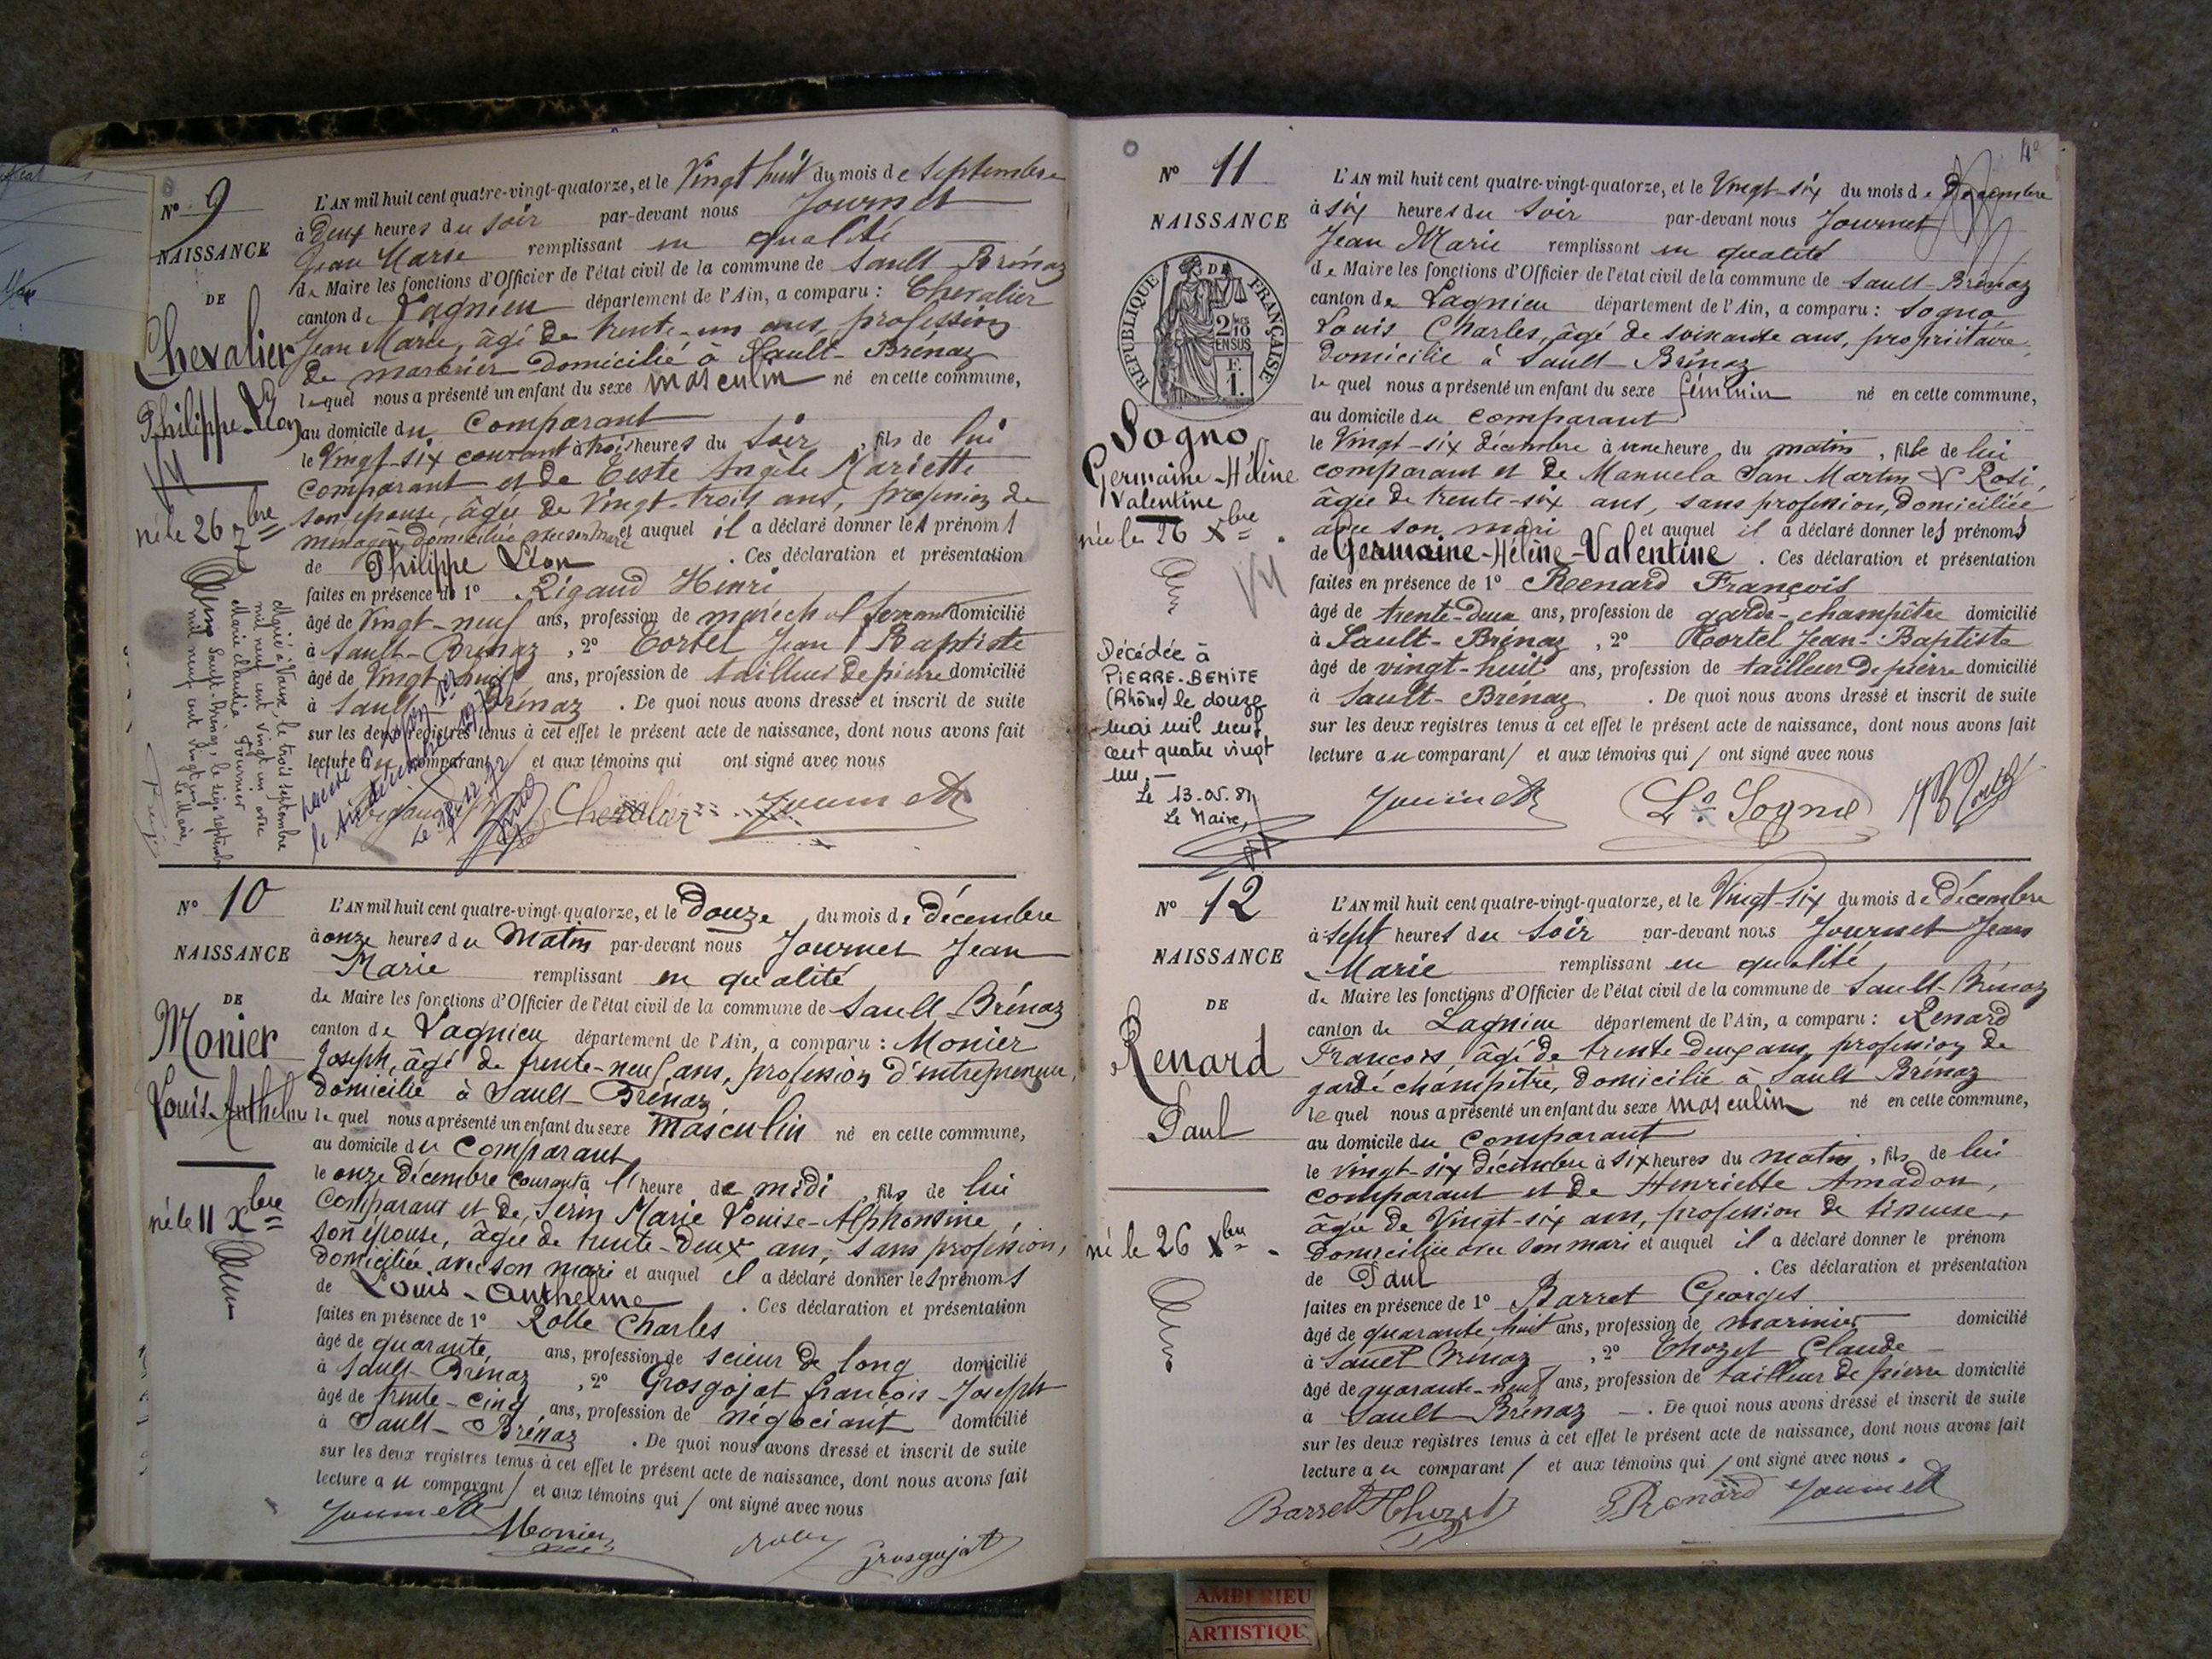 Nº 9
NAISSANCE
DE
Chevalier
Philippe-Léon
né le 26 7bre
L'AN mil huit cent quatre-vingt-quatorze, et le Vingt huit du mois de Septembre
à Deux heures du soir par-devant nous Journet
Jean Marie remplissant en qualité
de Maire les fonctions d'Officier de l'état civil de la commune de Sault-Brénaz
canton de Lagnieu département de l'Ain, a comparu : Chevalier
Jean Marie, âgé de trente-un ans, profession
de marbrier domicilié à Sault-Brénaz
lequel nous a présenté un enfant du sexe masculin né en cette commune,
au domicile du Comparant
le Vingt-six courant à trois heures du Soir, fils de lui
comparant et de Teste Angèle Mariette
son épouse, âgée de vingt-trois ans, profession de
ménagère domiciliée avec son mari et auquel il a déclaré donner les prénoms
de Philippe Léon . Ces déclaration et présentation
faites en présence de 1º Rigaud Henri
âgé de Vingt-neuf ans, profession de maréchal ferrant domicilié
à Sault-Brénaz, 2º Tortel Jean Baptiste
âgé de Vingt huit ans, profession de tailleur de pierre domicilié
à Sault Brénaz . De quoi nous avons dressé et inscrit de suite
sur les deux registres tenus à cet effet le présent acte de naissance, dont nous avons fait
lecture au comparant et aux témoins qui ont signé avec nous
Chevalier Journet
Marié à Vaise, le trois septembre
mil neuf cent vingt un avec
Marie Claudia Fournier
Sault-Brénaz, le seize septembre
mil neuf cent vingt un
Le Maire,
Nº 10
NAISSANCE
DE
Monier
Louis-Anthelme
né le 11 Xbre
L'AN mil huit cent quatre-vingt-quatorze, et le douze du mois de décembre
à onze heures du Matin par-devant nous Journet Jean
Marie remplissant en qualité
de Maire les fonctions d'Officier de l'état civil de la commune de Sault-Brénaz
canton de Lagnieu département de l'Ain, a comparu : Monier
Joseph, âgé de trente-neuf ans, profession d'entrepreneur,
domicilié à Sault-Brénaz
lequel nous a présenté un enfant du sexe masculin né en cette commune,
au domicile du Comparant
le onze décembre courant à l'heure de midi, fils de lui
comparant et de Serin Marie Louise-Alphonsine,
son épouse, âgée de trente-deux ans, sans profession,
domiciliée avec son mari et auquel il a déclaré donner les prénoms
de Louis-Anthelme . Ces déclaration et présentation
faites en présence de 1º Rolle Charles
âgé de quarante ans, profession de scieur de long domicilié
à Sault-Brénaz, 2º Grosgojat françois-Joseph
âgé de trente-cinq ans, profession de négociant domicilié
à Sault-Brénaz . De quoi nous avons dressé et inscrit de suite
sur les deux registres tenus à cet effet le présent acte de naissance, dont nous avons fait
lecture au comparant / et aux témoins qui / ont signé avec nous
Journet Monier Grosgojat
Nº 11
NAISSANCE
DE
RÉPUBLIQUE FRANÇAISE
2/10
EN SUS
F.
1.
Sogno
Germaine-Hélène
Valentine
née le 26 Xbre
Décédée à
PIERRE-BENITE
(Rhône) le douze
mai mil neuf
cent quatre vingt
un.-
Le 13.05.81
Le Maire,
L'AN mil huit cent quatre-vingt-quatorze, et le Vingt-six du mois de Décembre
à six heures du Soir par-devant nous Journet
Jean Marie remplissant en qualité
de Maire les fonctions d'Officier de l'état civil de la commune de Sault-Brénaz
canton de Lagnieu département de l'Ain, a comparu : Sogno
Louis Charles, âgé de soixante ans, propriétaire
domicilié à Sault-Brénaz
lequel nous a présenté un enfant du sexe féminin né en cette commune,
au domicile du comparant
le Vingt-six décembre à une heure du matin, fille de lui
comparant et de Manuela San Martin Y Rosi,
âgée de trente-six ans, sans profession, domiciliée
avec son mari et auquel il a déclaré donner les prénoms
de Germaine-Hélène-Valentine . Ces déclaration et présentation
faites en présence de 1º Renard François
âgé de trente-deux ans, profession de garde-champêtre domicilié
à Sault-Brénaz, 2º Tortel Jean-Baptiste
âgé de vingt-huit ans, profession de tailleur de pierre domicilié
à Sault-Brénaz . De quoi nous avons dressé et inscrit de suite
sur les deux registres tenus à cet effet le présent acte de naissance, dont nous avons fait
lecture au comparant / et aux témoins qui / ont signé avec nous
Journet Ls Sogno
Nº 12
NAISSANCE
DE
Renard
Paul
né le 26 Xbre
L'AN mil huit cent quatre-vingt-quatorze, et le Vingt-six du mois de Décembre
à sept heures du Soir par-devant nous Journet Jean
Marie remplissant en qualité
de Maire les fonctions d'Officier de l'état civil de la commune de Sault-Brénaz
canton de Lagnieu département de l'Ain, a comparu : Renard
François âgé de trente-deux ans, profession de
garde champêtre, domicilié à Sault Brénaz
lequel nous a présenté un enfant du sexe masculin né en cette commune,
au domicile du comparant
le vingt-six décembre à six heures du matin, fils de lui
comparant et de Henriette Amadon,
âgée de Vingt-six ans, profession de tisseuse,
domiciliée avec son mari et auquel il a déclaré donner le prénom
de Paul . Ces déclaration et présentation
faites en présence de 1º Barret Georges
âgé de quarante huit ans, profession de marinier domicilié
à Sault Brénaz, 2º Thozet Claude
âgé de quarante-neuf ans, profession de tailleur de pierre domicilié
à Sault-Brénaz . De quoi nous avons dressé et inscrit de suite
sur les deux registres tenus à cet effet le présent acte de naissance, dont nous avons fait
lecture au comparant / et aux témoins qui / ont signé avec nous.
Barret Thozet Renard Journet
AMBERIEU
ARTISTIQU